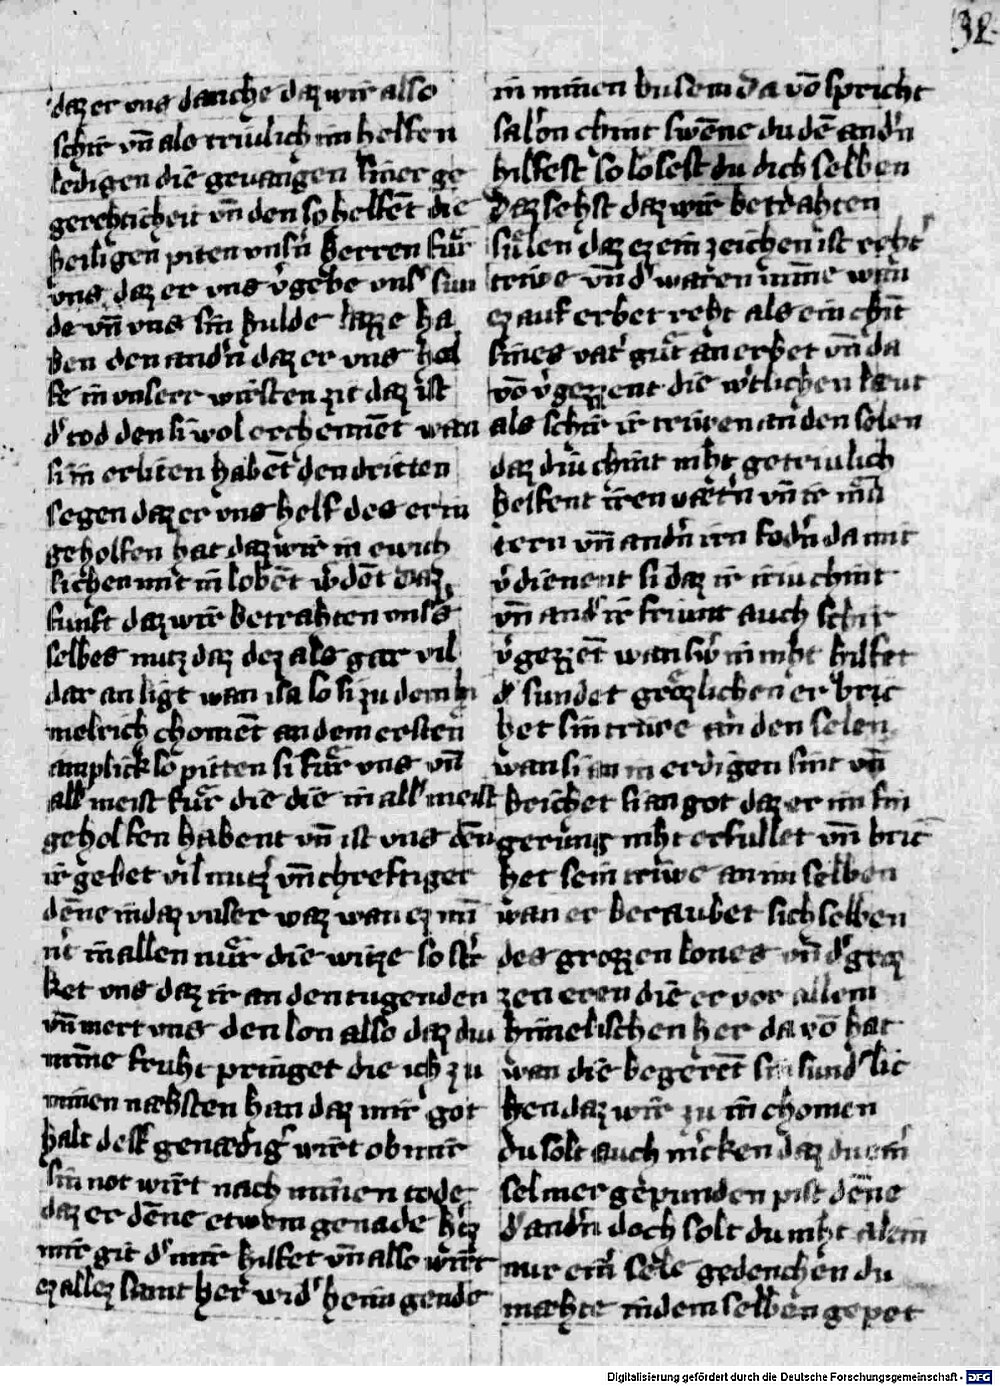 32
daz er uns danche daz wir also
schir vn̄ als triulich im helfen
ledigen die gevangen siner ge
gerehticheit vn̄ den so helfēt die
heiligen piten unsn̄ herren für
uns daz er uns v̓gebe uns̓ sun
de vn̄ uns sin hulde lazze ha
ben den andn̄ daz er uns hel
fe in unserr wirsten zit daz ist
d̓ tod den si wol erchennēt wan
si in erliten habēt den dritten
segen daz er uns helf des er in
geholfen hat daz wir in ewich
lichen mit in lobent daz
funft daz wir betrahten uns̓s
selbes nutz daz dez als gar vil
dar an ligt wan so si zu dem hi
melrich choment an dem ersten
anplick so pitten si für uns vn̄
all̓ meist für die die in all̓ meist
geholfen habent vn̄ ist uns dēn
ir gebet vil nutz̓ vn̄ chreftiger
dēne in daz unser waz wan ez
in allen nür die witze so
ket uns daz ir an den tugenden
vn̄ mert uns den lon also daz diu
minne fruht pringet die ich zu
minen næhsten han daz mir got
halt dest genædig̓ wirt ob mir
sin not wirt nach minen tode
daz er dēne etwem genade
mir git d̓ mir hilfet vn̄ also wirt
ez allez samt her wid̓ hein gende
in minen busem da vō spricht
salōn chint swēne du dē andn̄
hilfest so lōsest du dich selben
daz sehst daz wir betrahten
sülen daz ez ein zeichen ist reht̓
triwe vn̄ d̓ waren minne wan
ez auf erbet reht als ein chīt
sines vat̓ gūt an erbet vn̄ da
vō v̓gezzent die w̓tlichen laut
als schir ir triwen an den selen
daz diu chint niht getriulich
helfent iren væt̓n vn̄ ir mū
tern vn̄ andn̄ irn fodn̄ da mit
v̓dienent si daz ir iriu chint
vn̄ and̓ ir friunt auch schir
v̓gezzēt wan sw̓ in niht hilfet
d̓ sundet grōzlichen er bric
het sin triwe an den selen
wan si an in erdigen sint vn̄
zeichet si an got daz er im sin
gerung niht erfullet vn̄ bric
het sein triwe an im selben
wan er beraubet sich selben
des grozzen lones vn̄ d̓ groz
zen eren die er vor allem
himelischen her da vō hat
wan die begerēt sin sund̓lic
hen daz wir zu in chomen
du solt auch m̓cken daz du ein̓
sel mer gepunden pist dēne
d̓ andn̄ doch solt du niht alein
nur ein̓ sele gedenchen du
mæhte in dem selben gepet
Digitalisierung gefördert durch die Deutsche Forschungsgemeinschaft - DFG